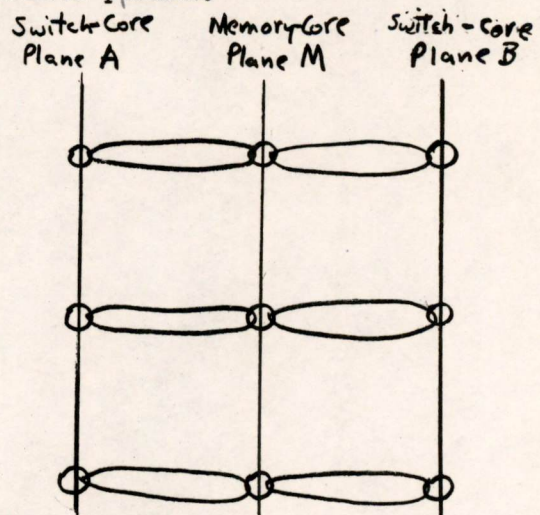 Switch-Core
Plane A
Memory-Core
Plane M
Switch-Core
Plane B